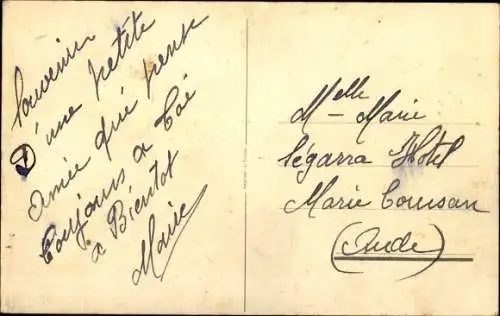 Souvenir
D'une petite
amie qui pense
Toujours a Toi
a Bientot
Marie
Melle Marie
Ségarra Hotel
Marie Coursan
(Aude)